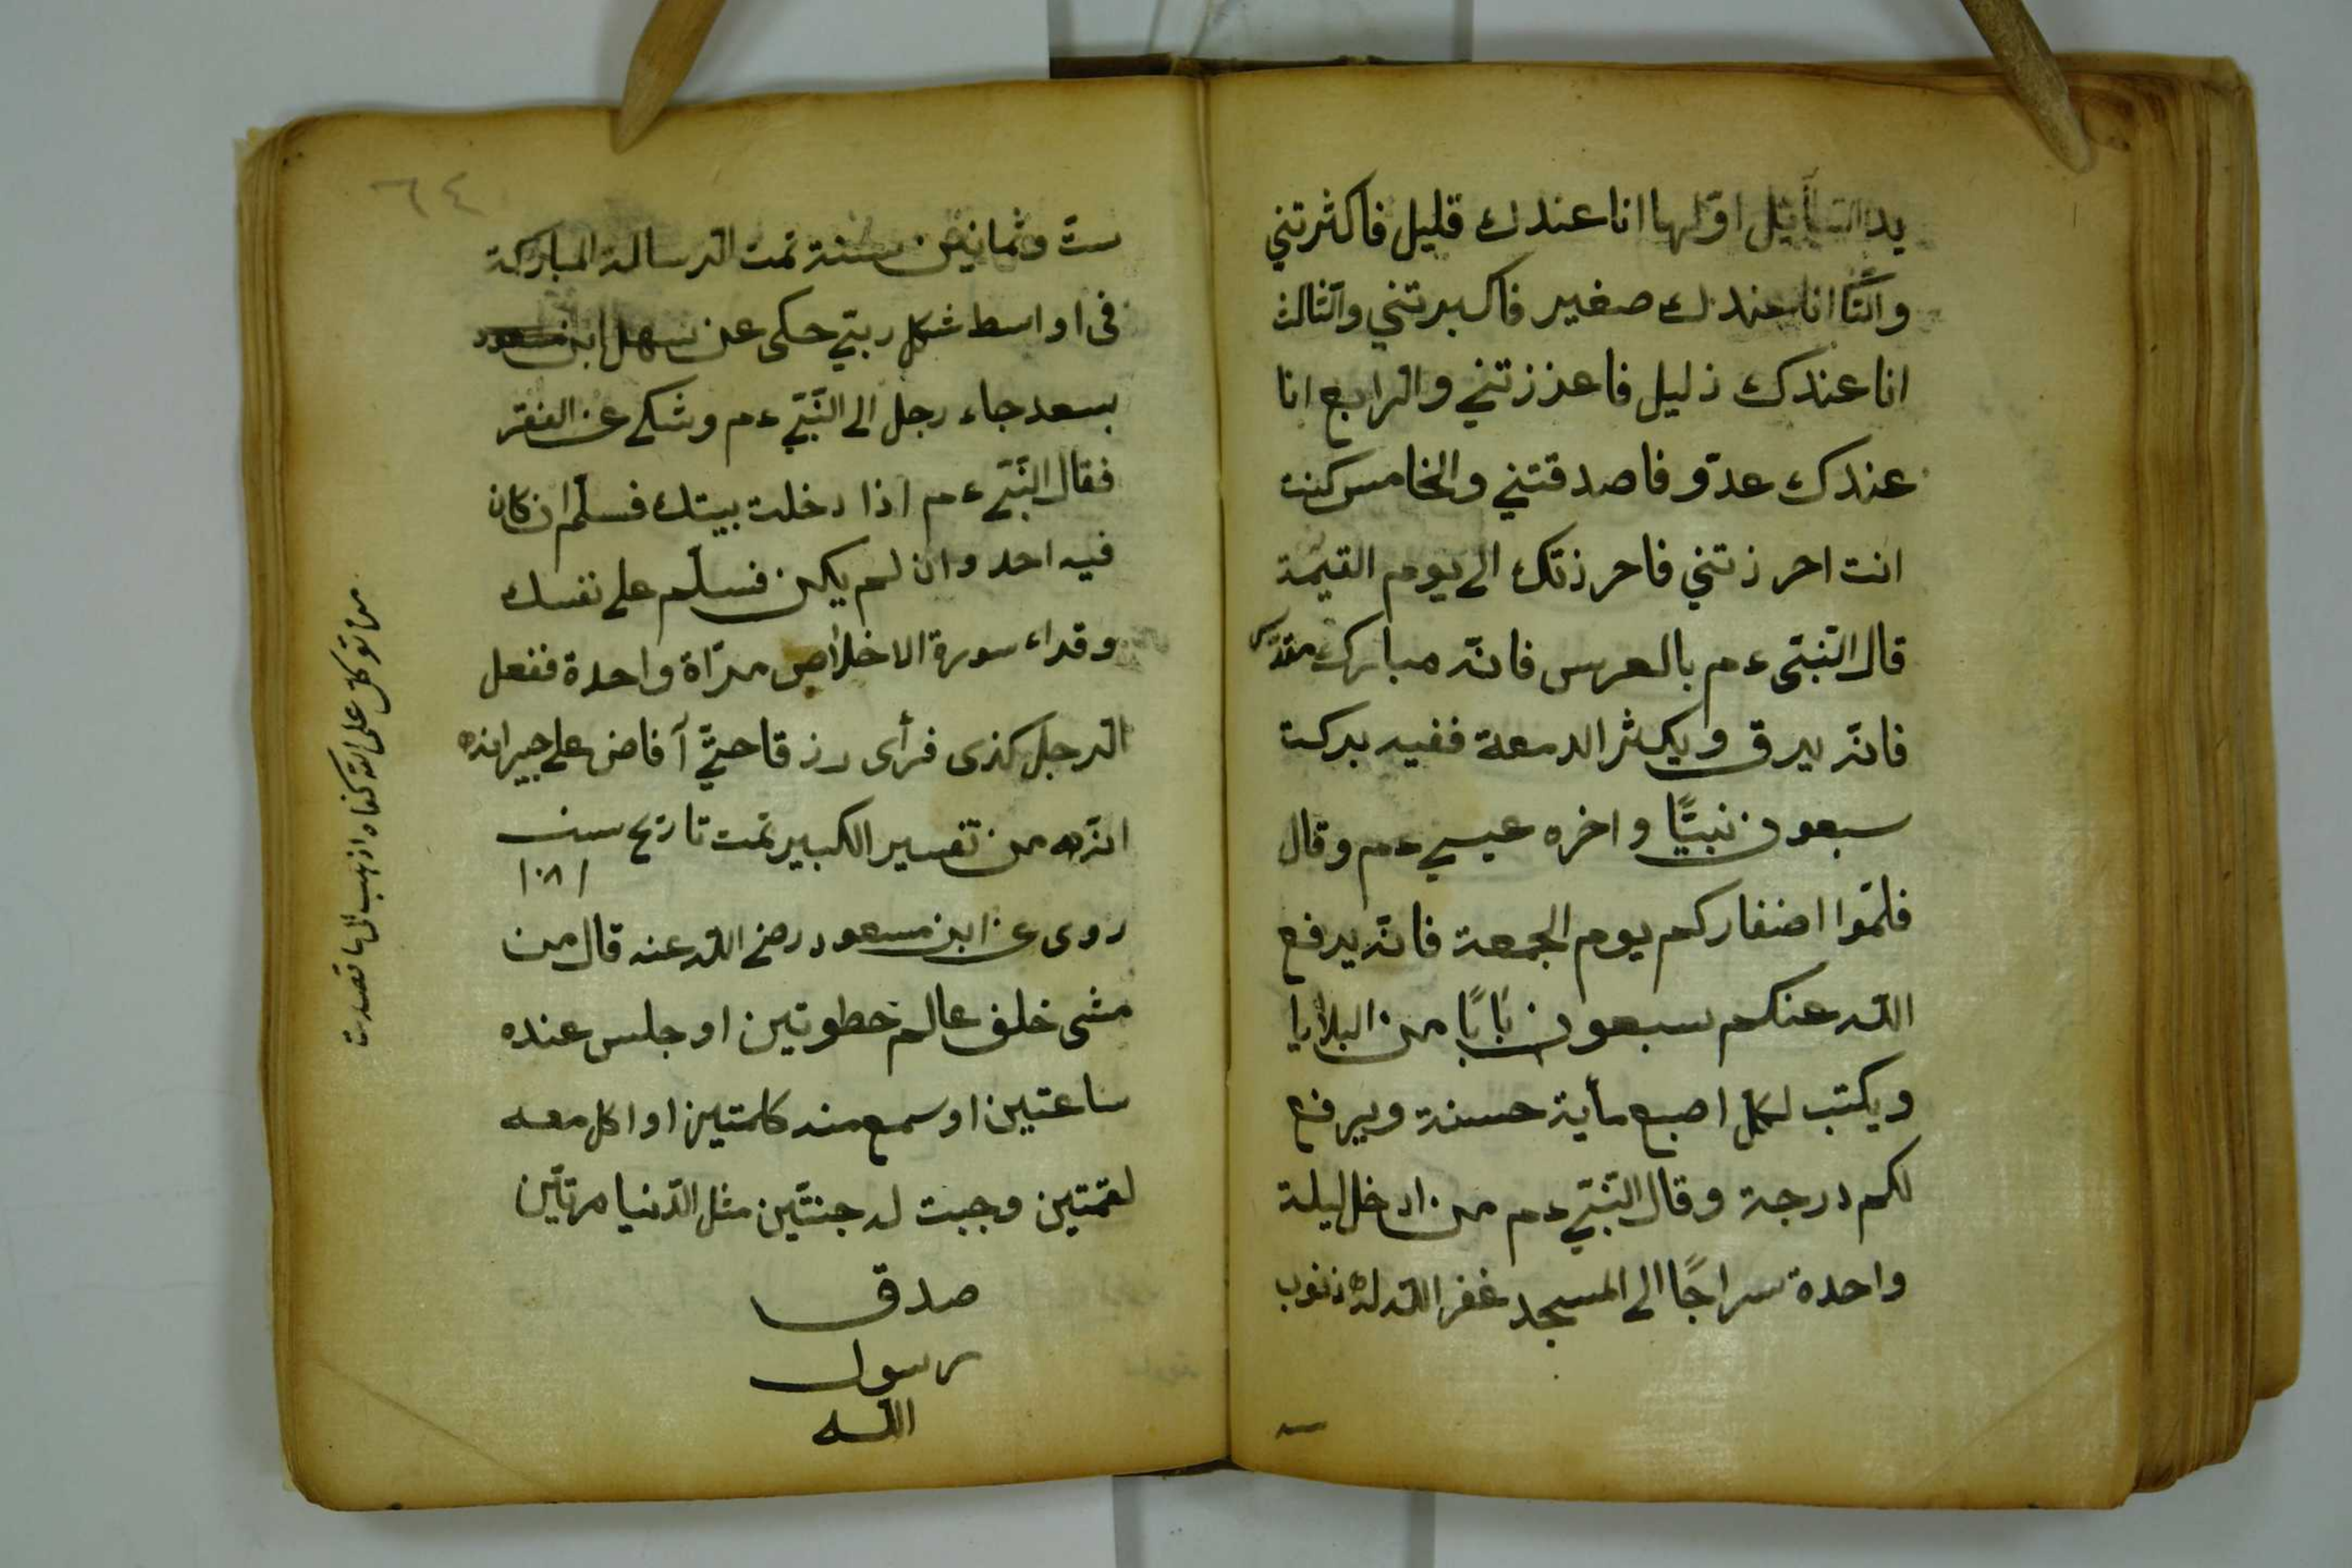 يد السآئل اوّلها انا عندك قليل فاكثرتني
والثّا انا عندك صغير فاكبرتني والثالث
انا عندك ذليل فاعززتني والرّابع انا
عندك عدوّ فاصدقتني والخامس كنت
انت احرزتني فاحرزتك الى يوم القيمة
قال النّبيّ ءم بالعرس فانّه مبارك مقدّس
فانّه يرق ويكثر الدمعة ففيه بركت
سبعون نبيًّا واخره عيسى ءم وقال
قلّموا اضفاركم يوم الجمعة فانّه يرفع
اللّه عنكم سبعون بابًا من البلايا
ويكتب لكل اصبع مأية حسنة ويرفع
لكم درجة وقال النّبيّ ءم من ادخل ليلة
واحدة سراجًا الى المسجد غفر اللّه له ذنوب
ستّ
٦٤
ستّ وثمانين سنة تمت الرّسالة المباركة
فى اواسط شكل ربتي حكى عن سهل ابن مسعود
بسعد جاء رجل الى النّبيّ ءم وشكى عن الفقر
فقال النّبيّ ءم اذا دخلت بيتك فسلّم ان كان
فيه احد وان لم يكن فسلّم على نفسك
وقراء سورة الاخلاص مرّاة واحدة ففعل
الرّجل كذى فرأى رزقا حتّى آفاض على جيرانه
انّه من تفسير الكبير تمت تاريخ سنة
١٠٨١
روى عن ابن مسعود رضى اللّه عنه قال من
مشى خلف عالم خطوتين او جلس عنده
ساعتين او سمع منه كلمتين او اكل معه
لقمتين وجبت له جنتّين مثل الدّنيا مرّتين
صدق
رسول
اللّه
من توكل على اللّه كفاه اذهب الى ما قصدت